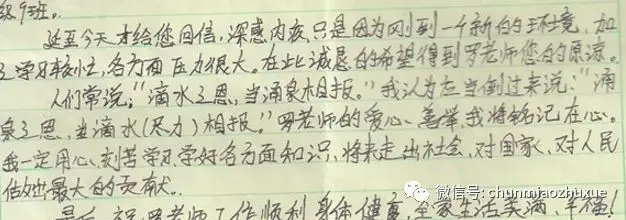 级9班。
延至今天才给您回信，深感内疚，只是因为刚到一个新的环境，加
之学习较忙，各方面压力很大。在此诚恳的希望得到罗老师您的原谅。
人们常说：“滴水之恩，当涌泉相报。”我认为应当倒过来说：“涌
泉之恩，当滴水(尽力)相报。”罗老师的爱心、善举，我将铭记在心。
我一定用心、刻苦学习，学好各方面知识，将来走出社会，对国家、对人民
做出最大的贡献。
最后，祝罗老师工作顺利，身体健康，全家生活美满、幸福！
微信号: chunmiaozhuxue